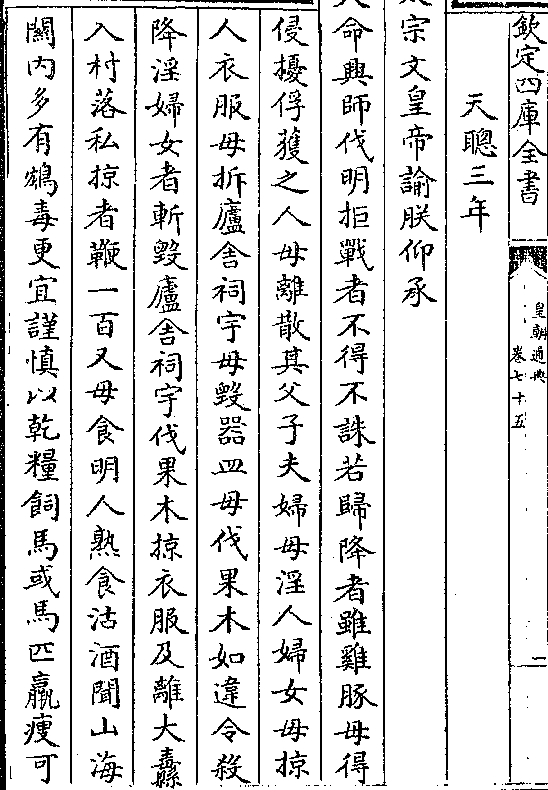 欽定四庫全書
皇朝通典
卷七十五
二
天聰三年
宗文皇帝諭朕仰承
命興師伐明拒戰者不得不誅若歸降者雖雞豚毋得
侵擾俘獲之人毋離散其父子夫婦毋淫人婦女毋掠
人衣服毋拆廬舍祠宇毋毀器皿毋伐果木如違令殺
降淫婦女者斬毀廬舍祠宇伐果木掠衣服及離大纛
入村落私掠者鞭一百又毋食明人熟食沽酒聞山海
關内多有鴆毒更宜謹慎以乾糧飼馬或馬匹羸瘦可